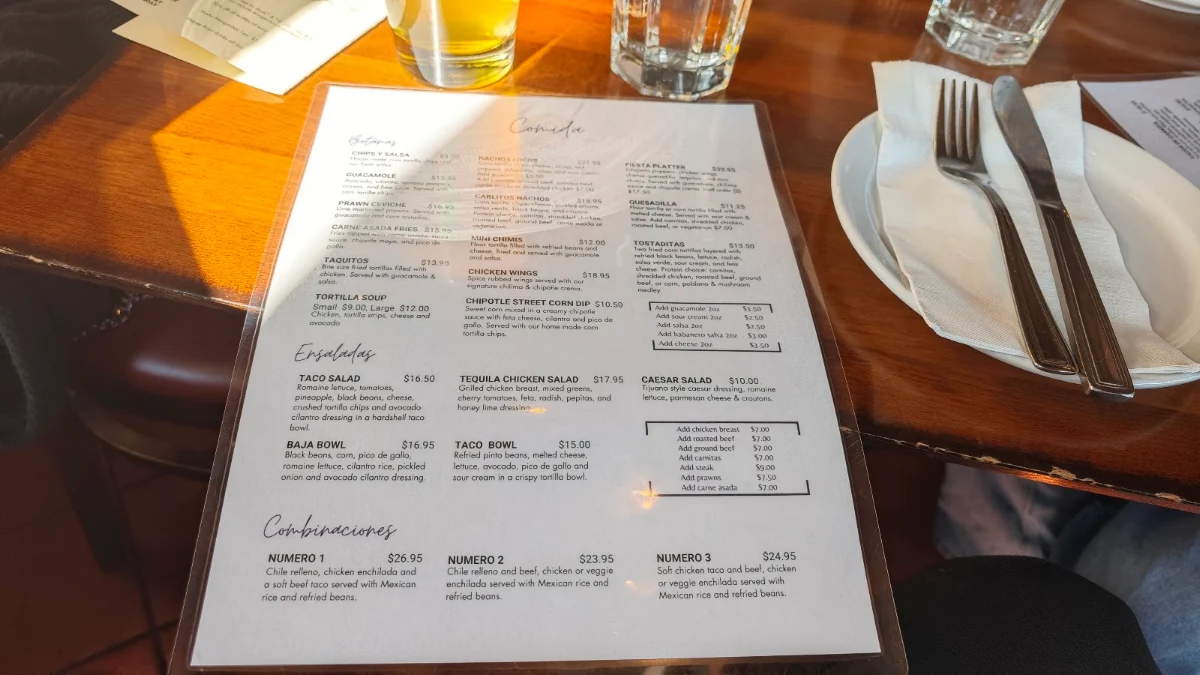 Comida
Botanas
CHIPS Y SALSA
GUACAMOLE
PRAWN CEVICHE $16.95
Lime marinated prawns. Served with
guacamole and corn tostadas.
CARNE ASADA FRIES $15.95
sauce, chipotle mayo, and pico de
gallo.
TAQUITOS $13.95
Bite size fried tortillas filled with
chicken. Served with guacamole &
salsa.
TORTILLA SOUP
Small $9.00, Large $12.00
Chicken, tortilla strips, cheese and
avocado
NACHOS $21.95
CARLITOS NACHOS $18.95
vegetarian.
MINI CHIMIS $12.00
Flour tortilla filled with refried beans and
cheese, fried and served with guacamole
and salsa.
CHICKEN WINGS $18.95
Spice rubbed wings served with our
signature chilima & chipotle crema.
CHIPOTLE STREET CORN DIP $10.50
Sweet corn mixed in a creamy chipotle
sauce with feta cheese, cilantro and pico de
gallo. Served with our home made corn
tortilla chips.
FIESTA PLATTER
QUESADILLA $11.25
Flour tortilla or corn tortilla filled with
melted cheese. Served with sour cream &
salsa. Add carnitas, shredded chicken,
roasted beef, or vegetarian $7.00
TOSTADITAS $13.50
Two fried corn tortillas layered with
refried black beans, lettuce, radish,
salsa verde, sour cream, and feta
cheese. Protein choice: carnitas,
shredded chicken, roasted beef, ground
beef, or corn, poblano & mushroom
medley.
Add guacamole 2oz $3.50
Add sour cream 2oz $2.50
Add salsa 2oz $2.50
Add habanero salsa 2oz $3.00
Add cheese 2oz $3.50
Ensaladas
TACO SALAD $16.50
Romaine lettuce, tomatoes,
pineapple, black beans, cheese,
crushed tortilla chips and avocado
cilantro dressing in a hardshell taco
bowl.
TEQUILA CHICKEN SALAD $17.95
Grilled chicken breast, mixed greens,
cherry tomatoes, feta, radish, pepitas, and
honey lime dressing.
CAESAR SALAD $10.00
Tijuana style caesar dressing, romaine
lettuce, parmesan cheese & croutons.
BAJA BOWL $16.95
Black beans, corn, pico de gallo,
romaine lettuce, cilantro rice, pickled
onion and avocado cilantro dressing.
TACO BOWL $15.00
Refried pinto beans, melted cheese,
lettuce, avocado, pico de gallo and
sour cream in a crispy tortilla bowl.
Add chicken breast $7.00
Add roasted beef $7.00
Add ground beef $7.00
Add carnitas $7.00
Add steak $9.00
Add prawns $7.50
Add carne asada $7.00
Combinaciones
NUMERO 1 $26.95
Chile relleno, chicken enchilada and
a soft beef taco served with Mexican
rice and refried beans.
NUMERO 2 $23.95
Chile relleno and beef, chicken or veggie
enchilada served with Mexican rice and
refried beans.
NUMERO 3 $24.95
Soft chicken taco and beef, chicken
or veggie enchilada served with
Mexican rice and refried beans.